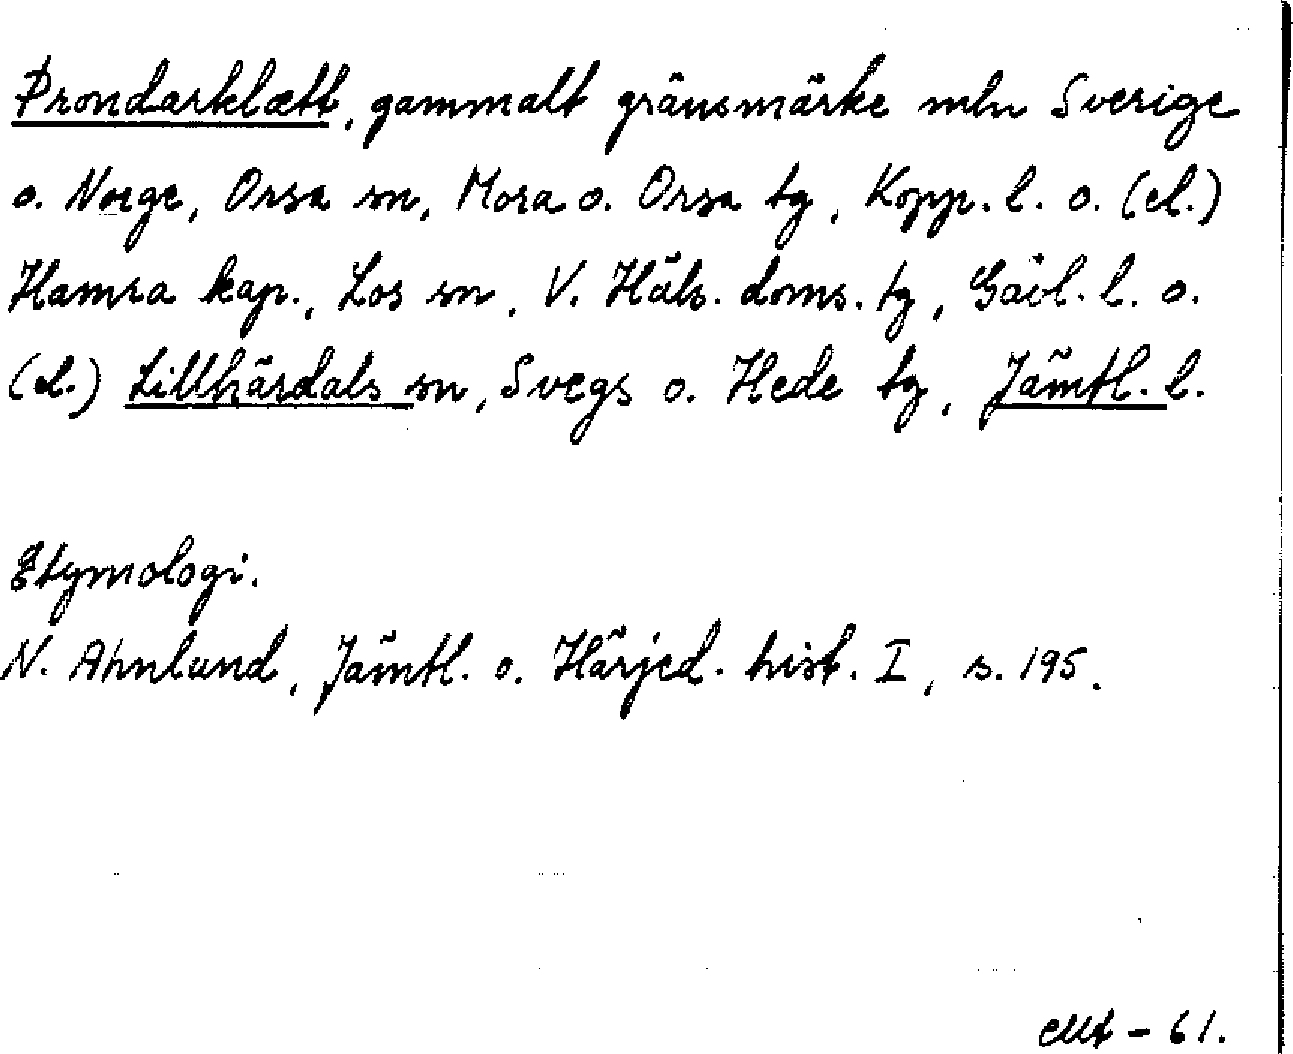 Þrondarklætt, gammalt gränsmärke mln Sverige
o. Norge, Orsa sn, Mora o. Orsa tg, Kopp. l. o. (el.)
Hamra kap., Los sn, V. Häls. doms. tg, Gävl. l. o.
(el.) Lillhärdals sn, Svegs o. Hede tg, Jämtl. l.
Etymologi.
N. Ahnlund, Jämtl. o. Härjed. hist. I, s. 195.
- 61.